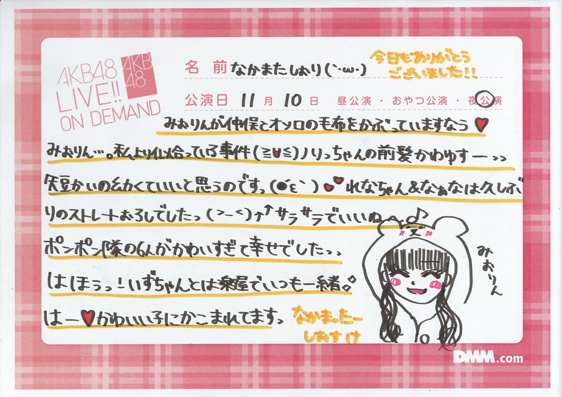 AKB48
LIVE!!
ON DEMAND
AKB
48
名前 なかまたしおり(`･ω･)
今日もありがとう
ございました!!
公演日 11月10日・昼公演・おやつ公演・夜公演
みおりんが仲俣とオソロの毛布をかぶっていますなう♥
みおりん…。私より似合っている事件(≧∪≦)ノりっちゃんの前髪かわゆすーっっ
短かいの
くていいと思うのです。
れなちゃん&なぁなは久しぶ
りのストレートおろしでしたっ(>ー<)↑↑サラサラでいいねー♪
ポンポン隊の6人がかわいすぎて幸せでしたっっ
はほぅっ!いずちゃんとは楽屋でいつも一緒。
はー♥かわいい子にかこまれてます。
なかまったー
しおすけ
みおりん
DMM.com